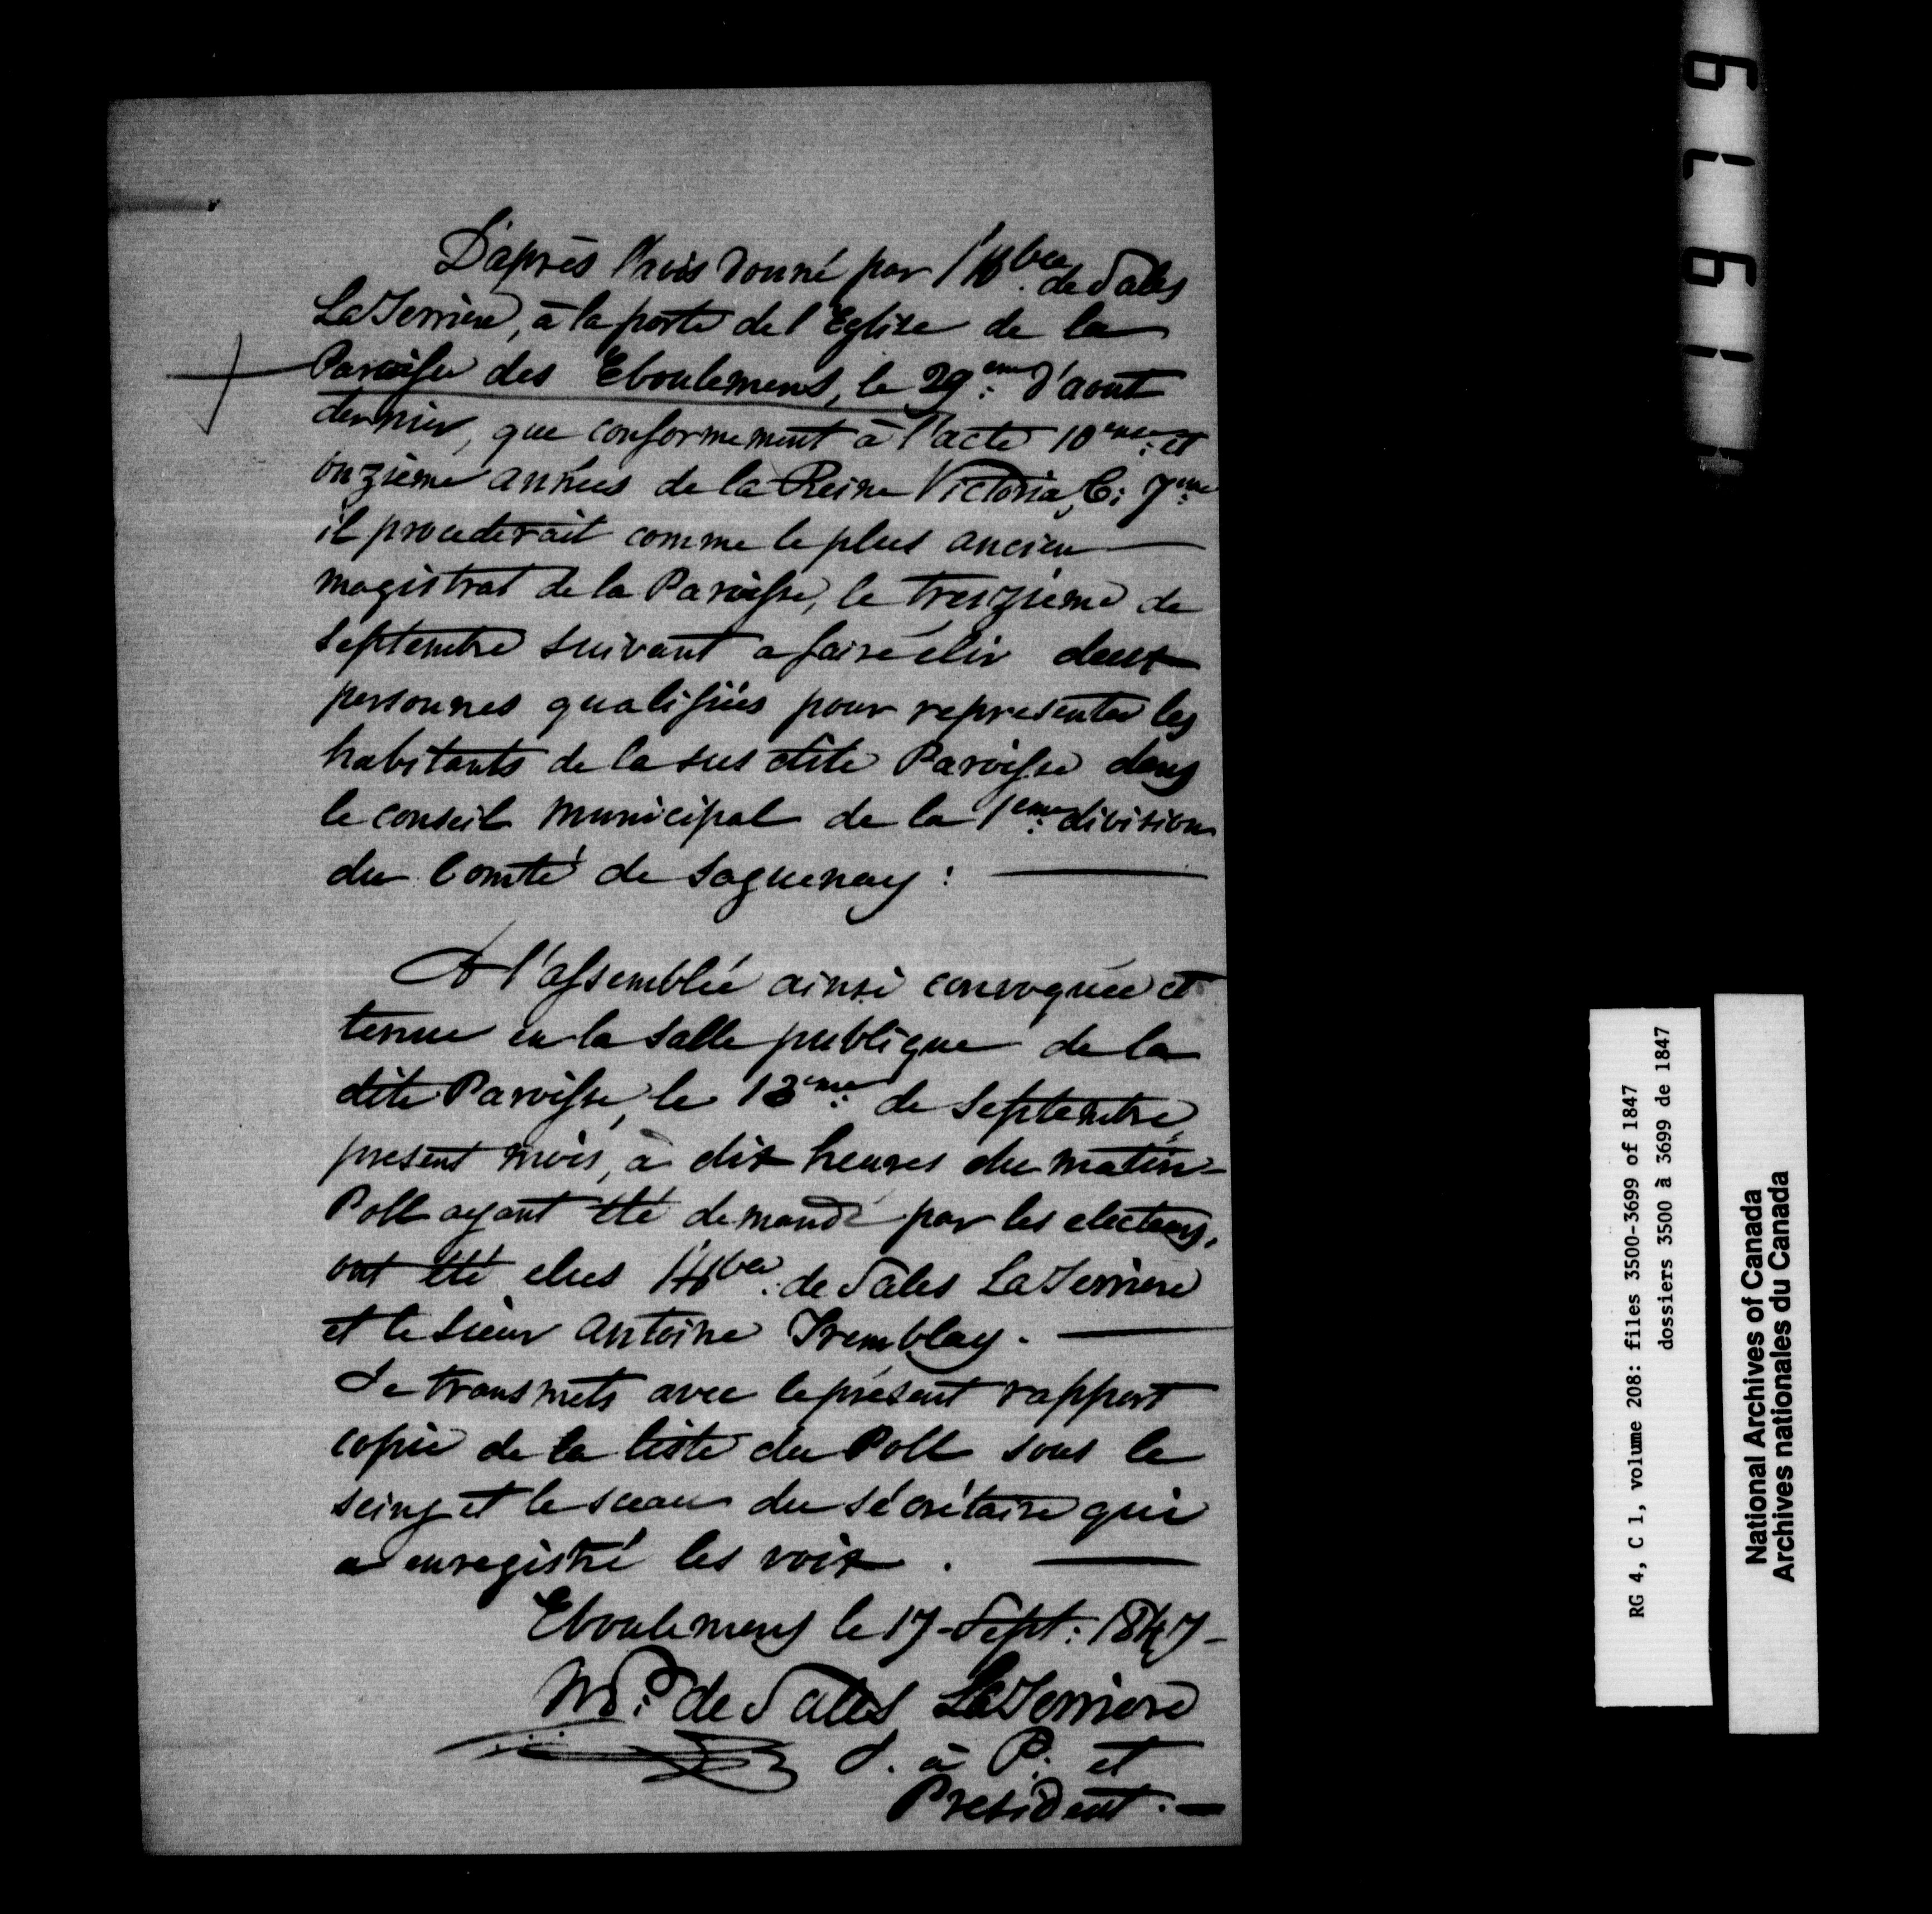 D'après l'avis donné par l'Hble. de Sales
LaTerrière, à la porte de l'Eglise de la
Paroisse des Eboulemens, le 29eme: d'aout
dernier, que conformement à l'acte 10eme: et
onzième années de la Reine Victoria, C: 7eme:
il procederait comme le plus ancien
magistrat de la Paroisse, le treizième de
septembre suivant a faire élir deux
personnes qualifiées pour representer les
habitants de la sus dite Paroisse dans
le conseil municipal de la 1ere: division
du Comté de Saguenay :
A l'assemblée ainsi convoquée et
tenue en la salle publique de la
dite Paroisse, le 13eme: de septembre,
present mois, à dix heures du matin -
Poll ayant été demandé par les electeurs,
ont été elus l'Hble. de Sales LaTerriere
et le Sieur Antoine Tremblay. -
Je transmets avec le présent rapport
copie de la liste du Poll sous le
seing et le sceau du sécrétaire qui
a enregistré les voix .
Eboulemens le 17 - Sept: 1847 -
M. P. de Sales LaTerriere
J. à P: et
President. -
1 6 1 7 9
RG 4, C 1, volume 208: files 3500-3699 of 1847
dossiers 3500 à 3699 de 1847
National Archives of Canada
Archives nationales du Canada